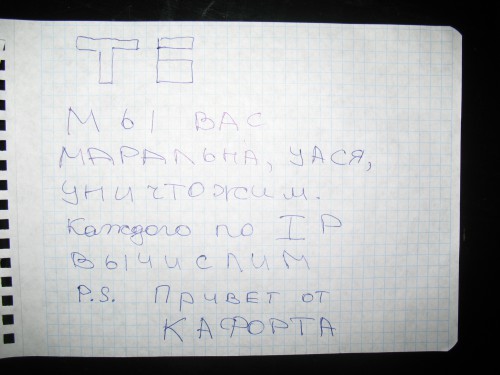 ТБ
МЫ ВАС
МАРАЛЬНА, УАСЯ,
УНИЧТОЖИМ.
Каждого по IP
ВЫЧИСЛИМ
P.S. Привет от
КАФОРТА